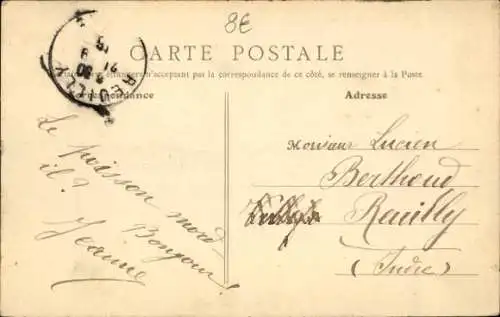 8€
CARTE POSTALE
Tous les pays étrangers n'acceptant pas la correspondance de ce côté, se renseigner à la Poste
Correspondance
Adresse
REUILLY
Le poisson mord-
il?
Bonjour!
Jeanne
Monsieur Lucien
Berthoud
Reuilly
(Indre)